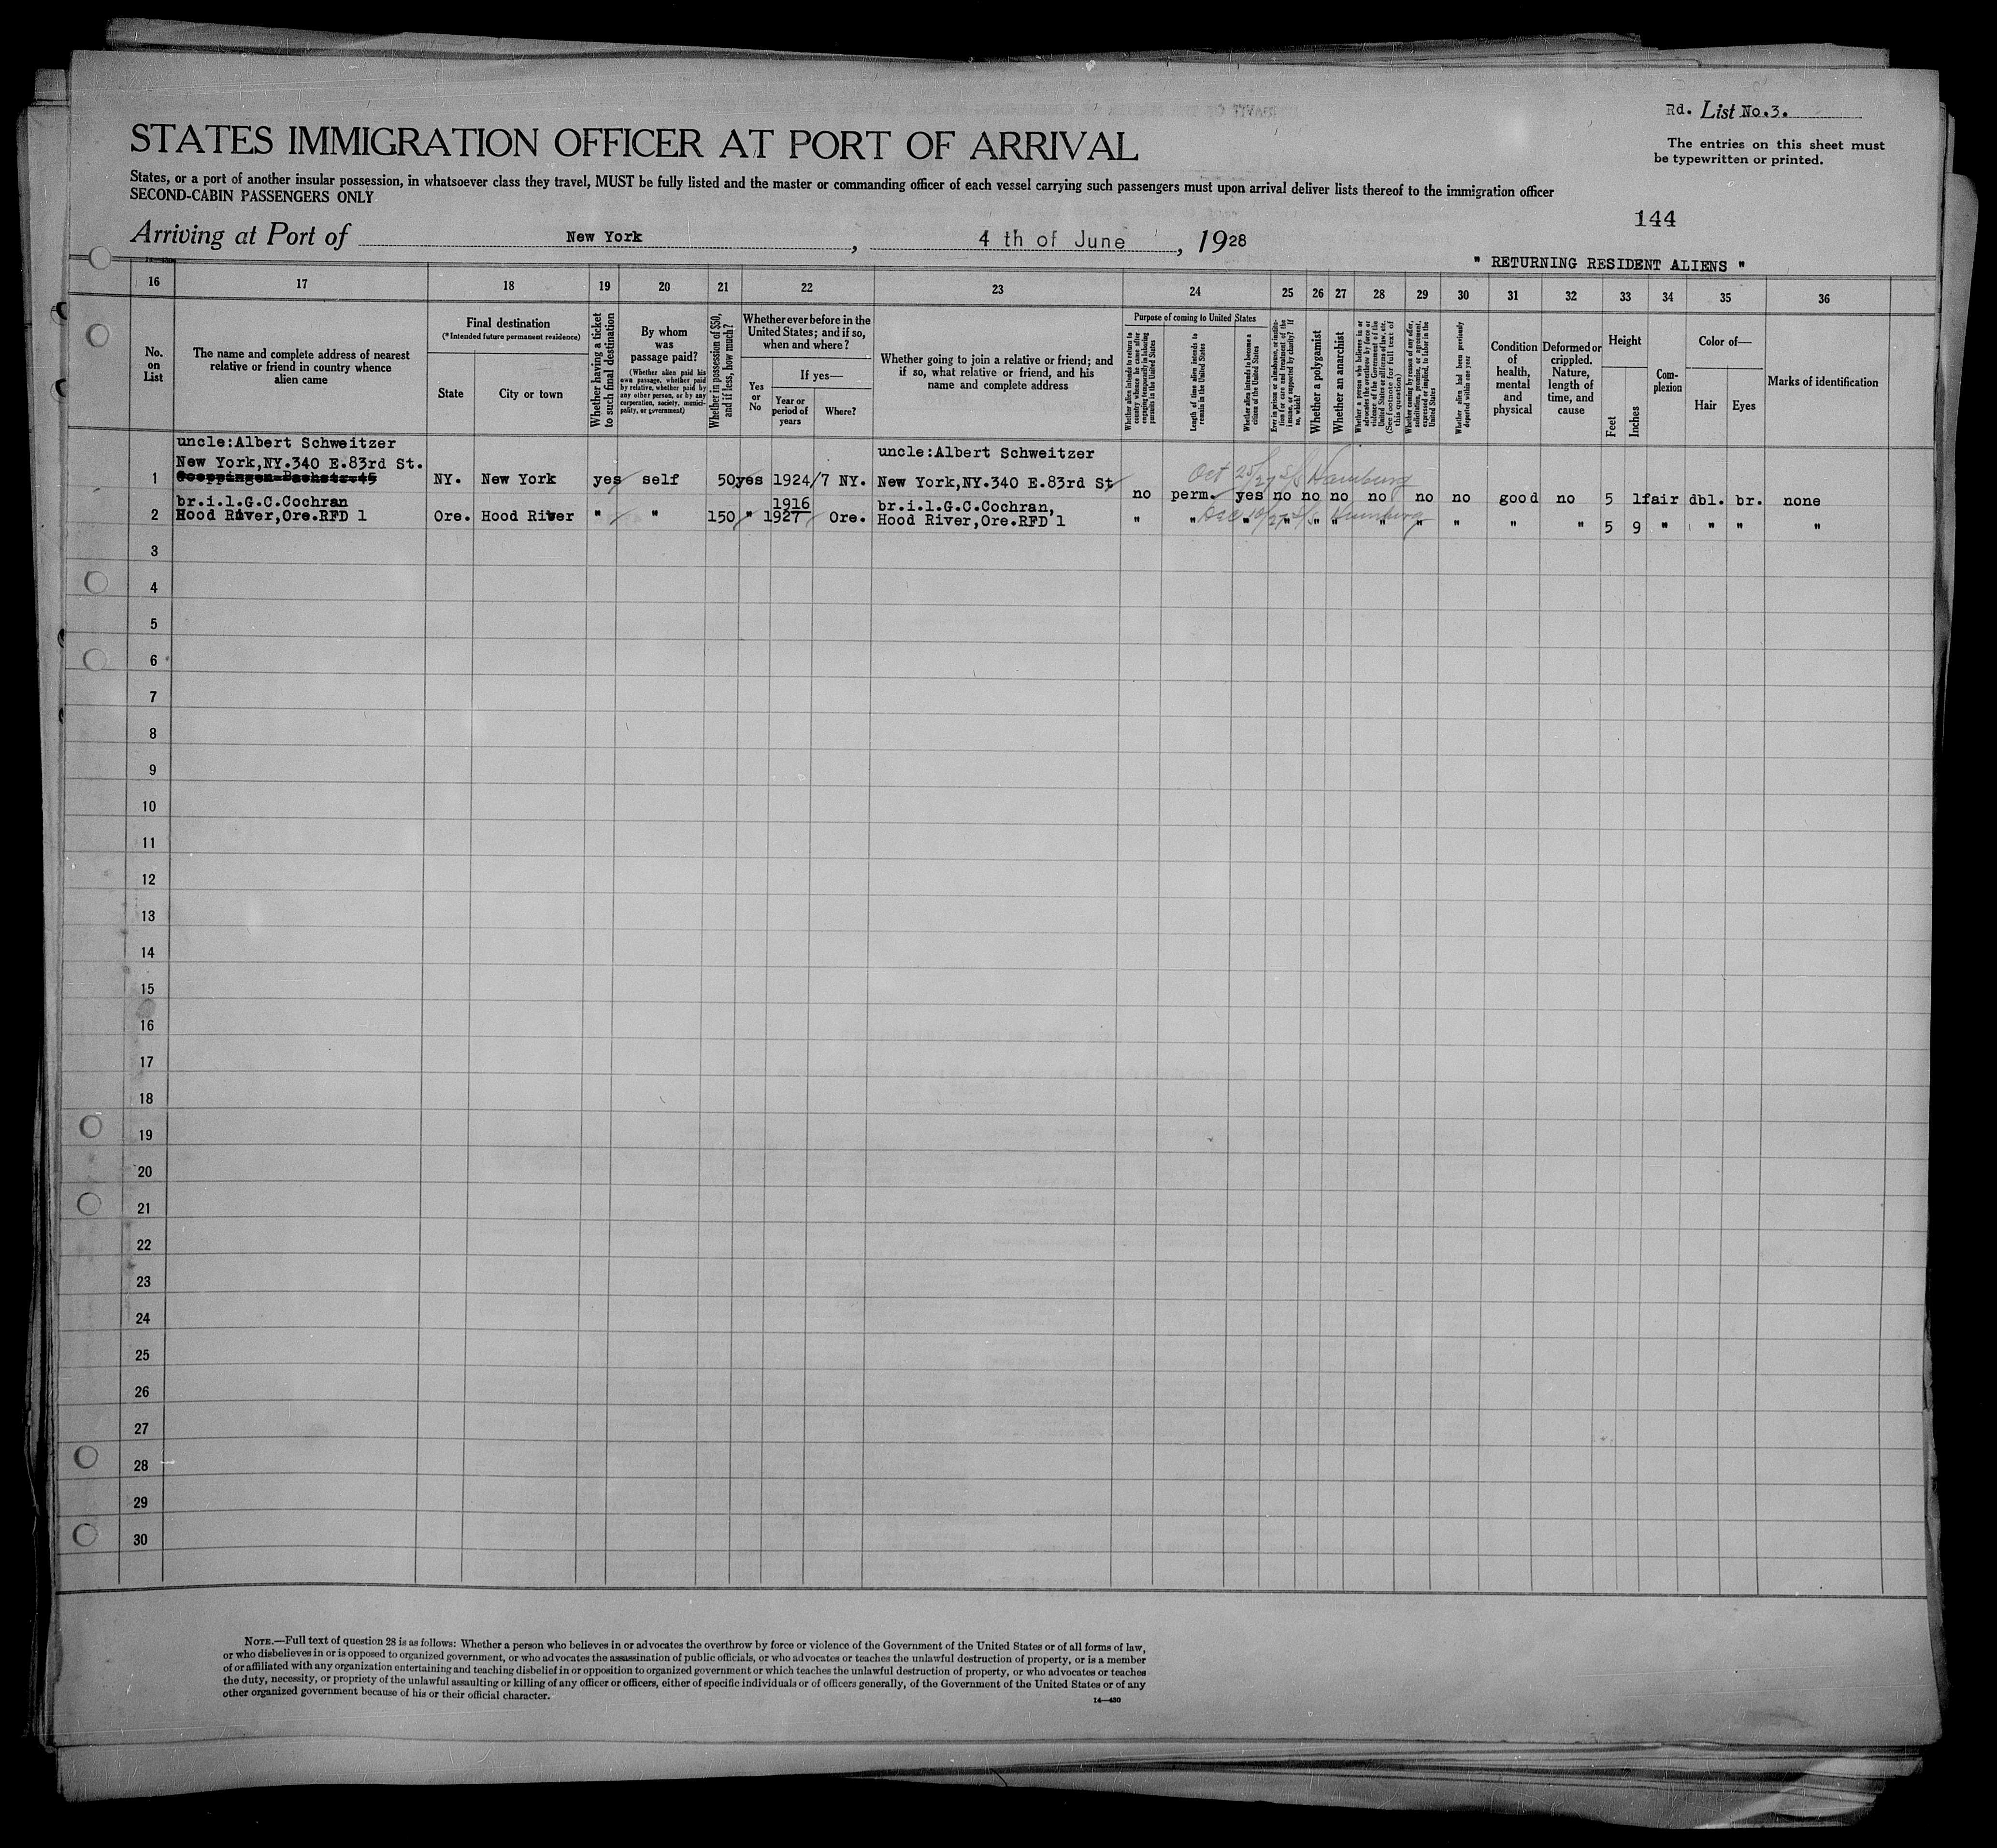 Rd. List No.3.
STATES IMMIGRATION OFFICER AT PORT OF ARRIVAL
The entries on this sheet must
be typewritten or printed.
States, or a port of another insular possession, in whatsoever class they travel, MUST be fully listed and the master or commanding officer of each vessel carrying such passengers must upon arrival deliver lists thereof to the immigration officer
SECOND-CABIN PASSENGERS ONLY
144
Arriving at Port of New York, 4 th of June, 1928
" RETURNING RESIDENT ALIENS "
16 17 18 19 20 21 22 23 24 25 26 27 28 29 30 31 32 33 34 35 36
No.
on
List
The name and complete address of nearest
relative or friend in country whence
alien came
Final destination
(*Intended future permanent residence)
State
City or town
Whether having a ticket
to such final destination
By whom
was
passage paid?
(Whether alien paid his
own passage, whether paid
by relative, whether paid by
any other person, or by any
corporation, society, munici-
pality, or government)
Whether in possession of $50,
and if less, how much?
Whether ever before in the
United States; and if so,
when and where?
Yes
or
No
If yes—
Year or
period of
years
Where?
Whether going to join a relative or friend; and
if so, what relative or friend, and his
name and complete address
Purpose of coming to United States
Whether alien intends to return to
country whence he came after
engaging temporarily in laboring
pursuits in the United States
Length of time alien intends to
remain in the United States
Whether alien intends to become a
citizen of the United States
Ever in prison or almshouse, or institu-
tion for care and treatment of the
insane, or supported by charity? If
so, which?
Whether a polygamist
Whether an anarchist
Whether a person who believes in or
advocates the overthrow by force or
violence of the Government of the
United States or all forms of law, etc.
(See footnote for full text of
this question)
Whether coming by reason of any offer,
solicitation, promise, or agreement,
expressed or implied, to labor in the
United States
Whether alien had been previously
deported within one year
Condition
of
health,
mental
and
physical
Deformed or
crippled.
Nature,
length of
time, and
cause
Height
Feet
Inches
Com-
plexion
Color of—
Hair
Eyes
Marks of identification
uncle:Albert Schweitzer
New York,NY.340 E.83rd St.
uncle:Albert Schweitzer
Oct 25/27 S/S Hamburg
1 NY. New York yes self 50 yes 1924/7 NY. New York,NY.340 E.83rd St
no perm. yes no no no no no no good no 5 1 fair dbl. br. none
br.i.l.G.C.Cochran
1916
br.i.l.G.C.Cochran,
2 Hood River,Ore.RFD 1 Ore. Hood River " " 150 " 1927 Ore. Hood River,Ore.RFD 1
" " " " " " " " " " " 5 9 " " " "
3
4
5
6
7
8
9
10
11
12
13
14
15
16
17
18
19
20
21
22
23
24
25
26
27
28
29
30
NOTE.—Full text of question 28 is as follows: Whether a person who believes in or advocates the overthrow by force or violence of the Government of the United States or of all forms of law,
or who disbelieves in or is opposed to organized government, or who advocates the assassination of public officials, or who advocates or teaches the unlawful destruction of property, or is a member
of or affiliated with any organization entertaining and teaching disbelief in or opposition to organized government or which teaches the unlawful destruction of property, or who advocates or teaches
the duty, necessity, or propriety of the unlawful assaulting or killing of any officer or officers, either of specific individuals or of officers generally, of the Government of the United States or of any
other organized government because of his or their official character.
14—430